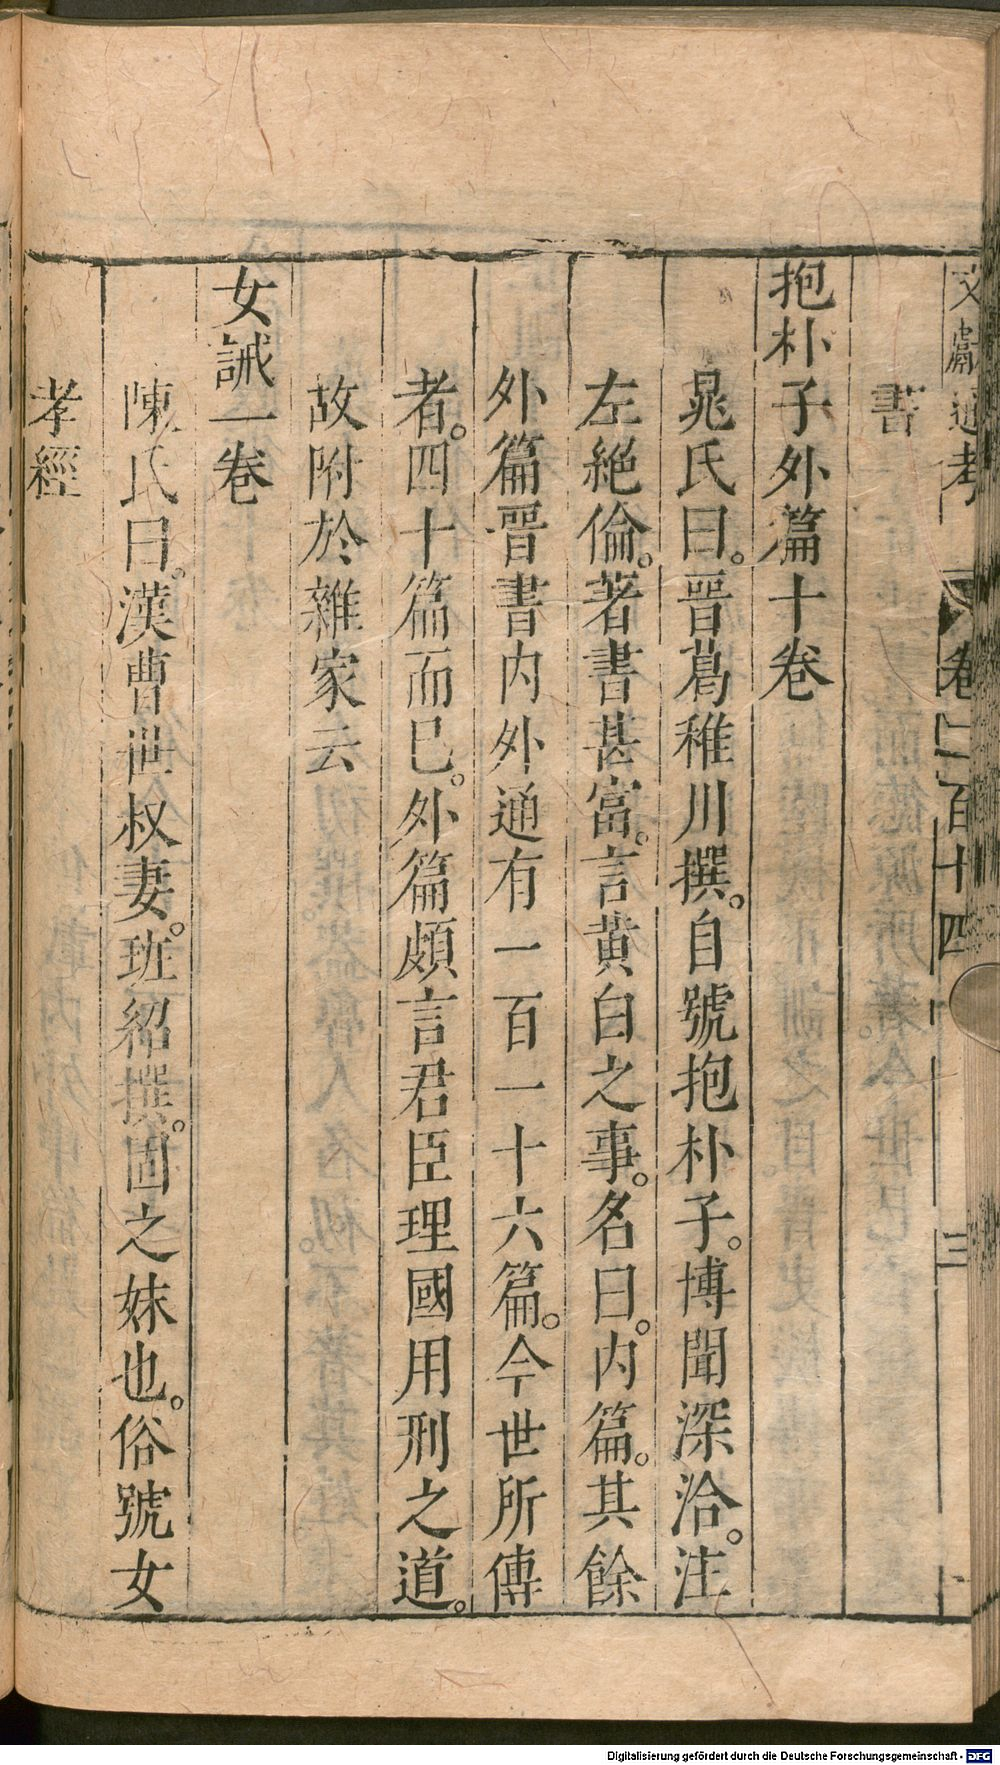 文獻通考 卷二百十四 三
書
抱朴子外篇十卷
晁氏曰。晉葛稚川撰。自號抱朴子。博聞深洽。注
左絕倫。著書甚富。言黃白之事。名曰。内篇。其餘
外篇晉書内外通有一百一十六篇。今世所傳
者。四十篇而巳。外篇頗言君臣理國用刑之道。
故附於雜家云
女誡一卷
陳氏曰。漢曹世叔妻。班紹撰。固之妹也。俗號女
孝經
Digitalisierung gefördert durch die Deutsche Forschungsgemeinschaft - DFG